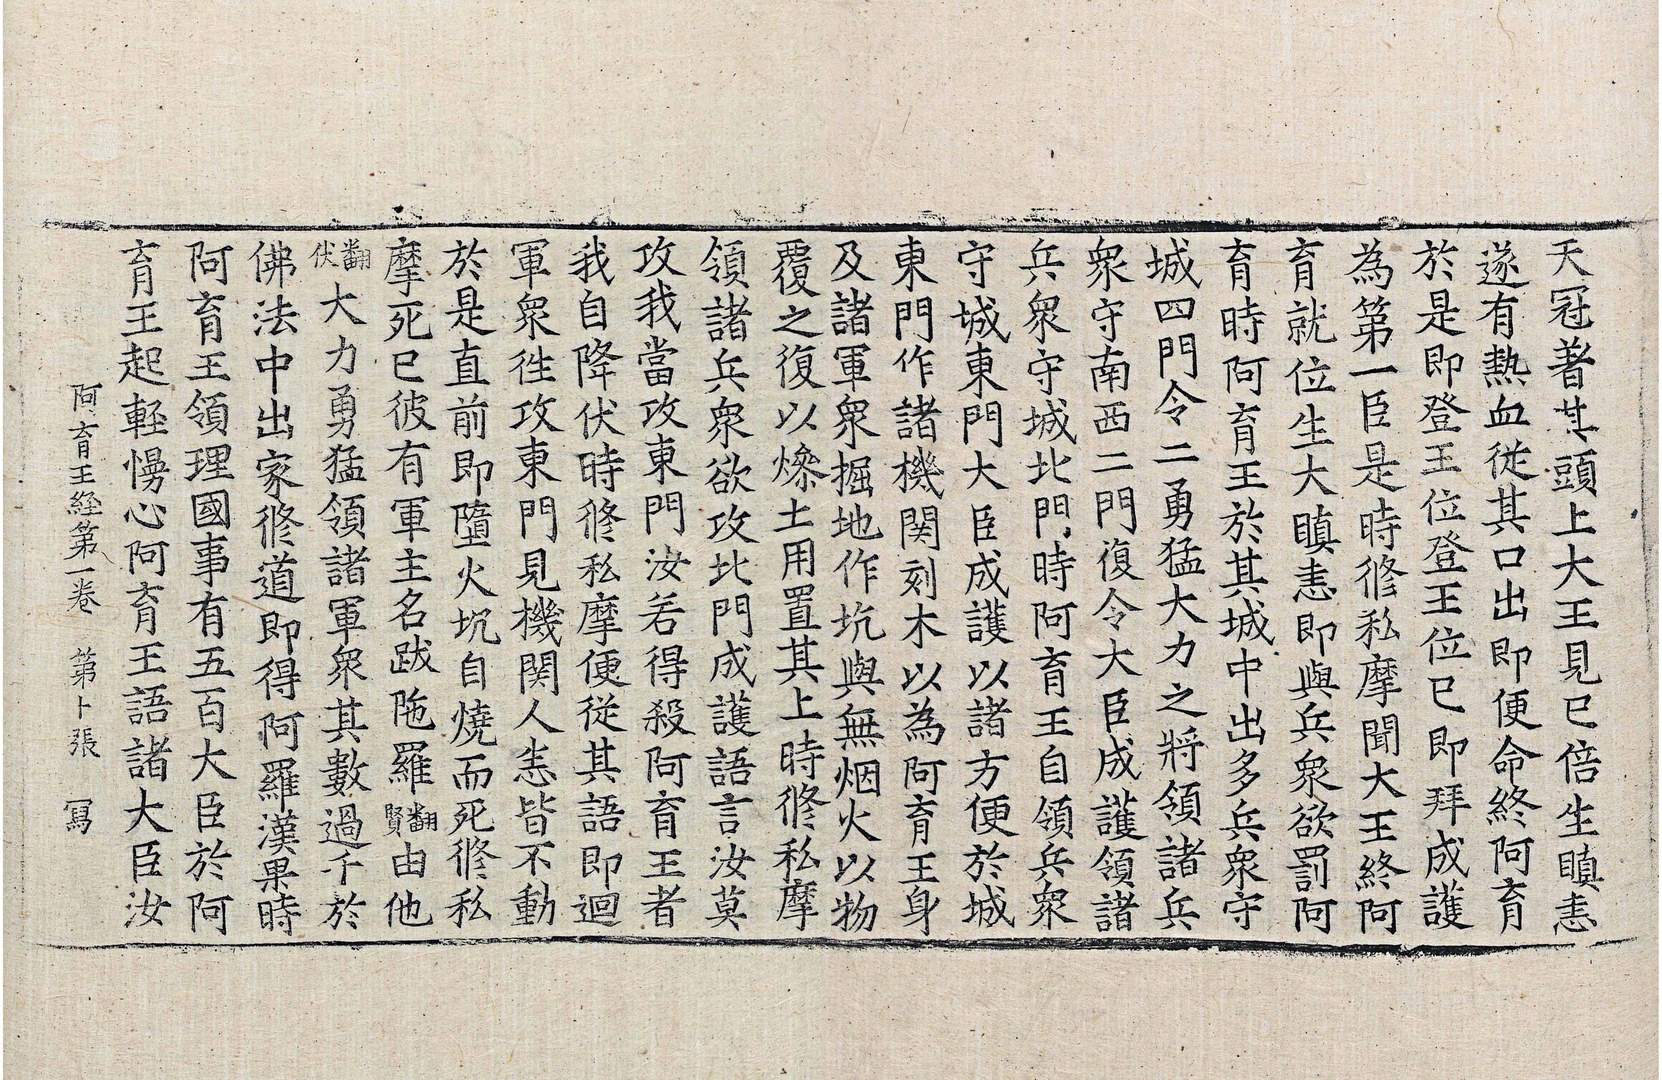 天冠著其頭上大王見已倍生瞋恚
遂有熱血從其口出即便命終阿育
於是即登王位登王位已即拜成護
為第一臣是時修私摩聞大王終阿
育就位生大瞋恚即與兵衆欲罰阿
育時阿育王於其城中出多兵衆守
城四門令二勇猛大力之將領諸兵
衆守南西二門復令大臣成護領諸
兵衆守城北門時阿育王自領兵衆
守城東門大臣成護以諸方便於城
東門作諸機関刻木以為阿育王身
及諸軍衆掘地作坑與無烟火以物
覆之復以燥土用置其上時修私摩
領諸兵衆欲攻北門成護語言汝莫
攻我當攻東門汝若得殺阿育王者
我自降伏時修私摩便從其語即迴
軍衆徃攻東門見機関人恚皆不動
於是直前即墮火坑自燒而死修私
摩死已彼有軍主名跋陁羅翻賢由他
翻伏大力勇猛領諸軍衆其數過千於
佛法中出家修道即得阿羅漢果時
阿育王領理國事有五百大臣於阿
育王起輕慢心阿育王語諸大臣汝
阿育王經第一卷 第卜張 冩